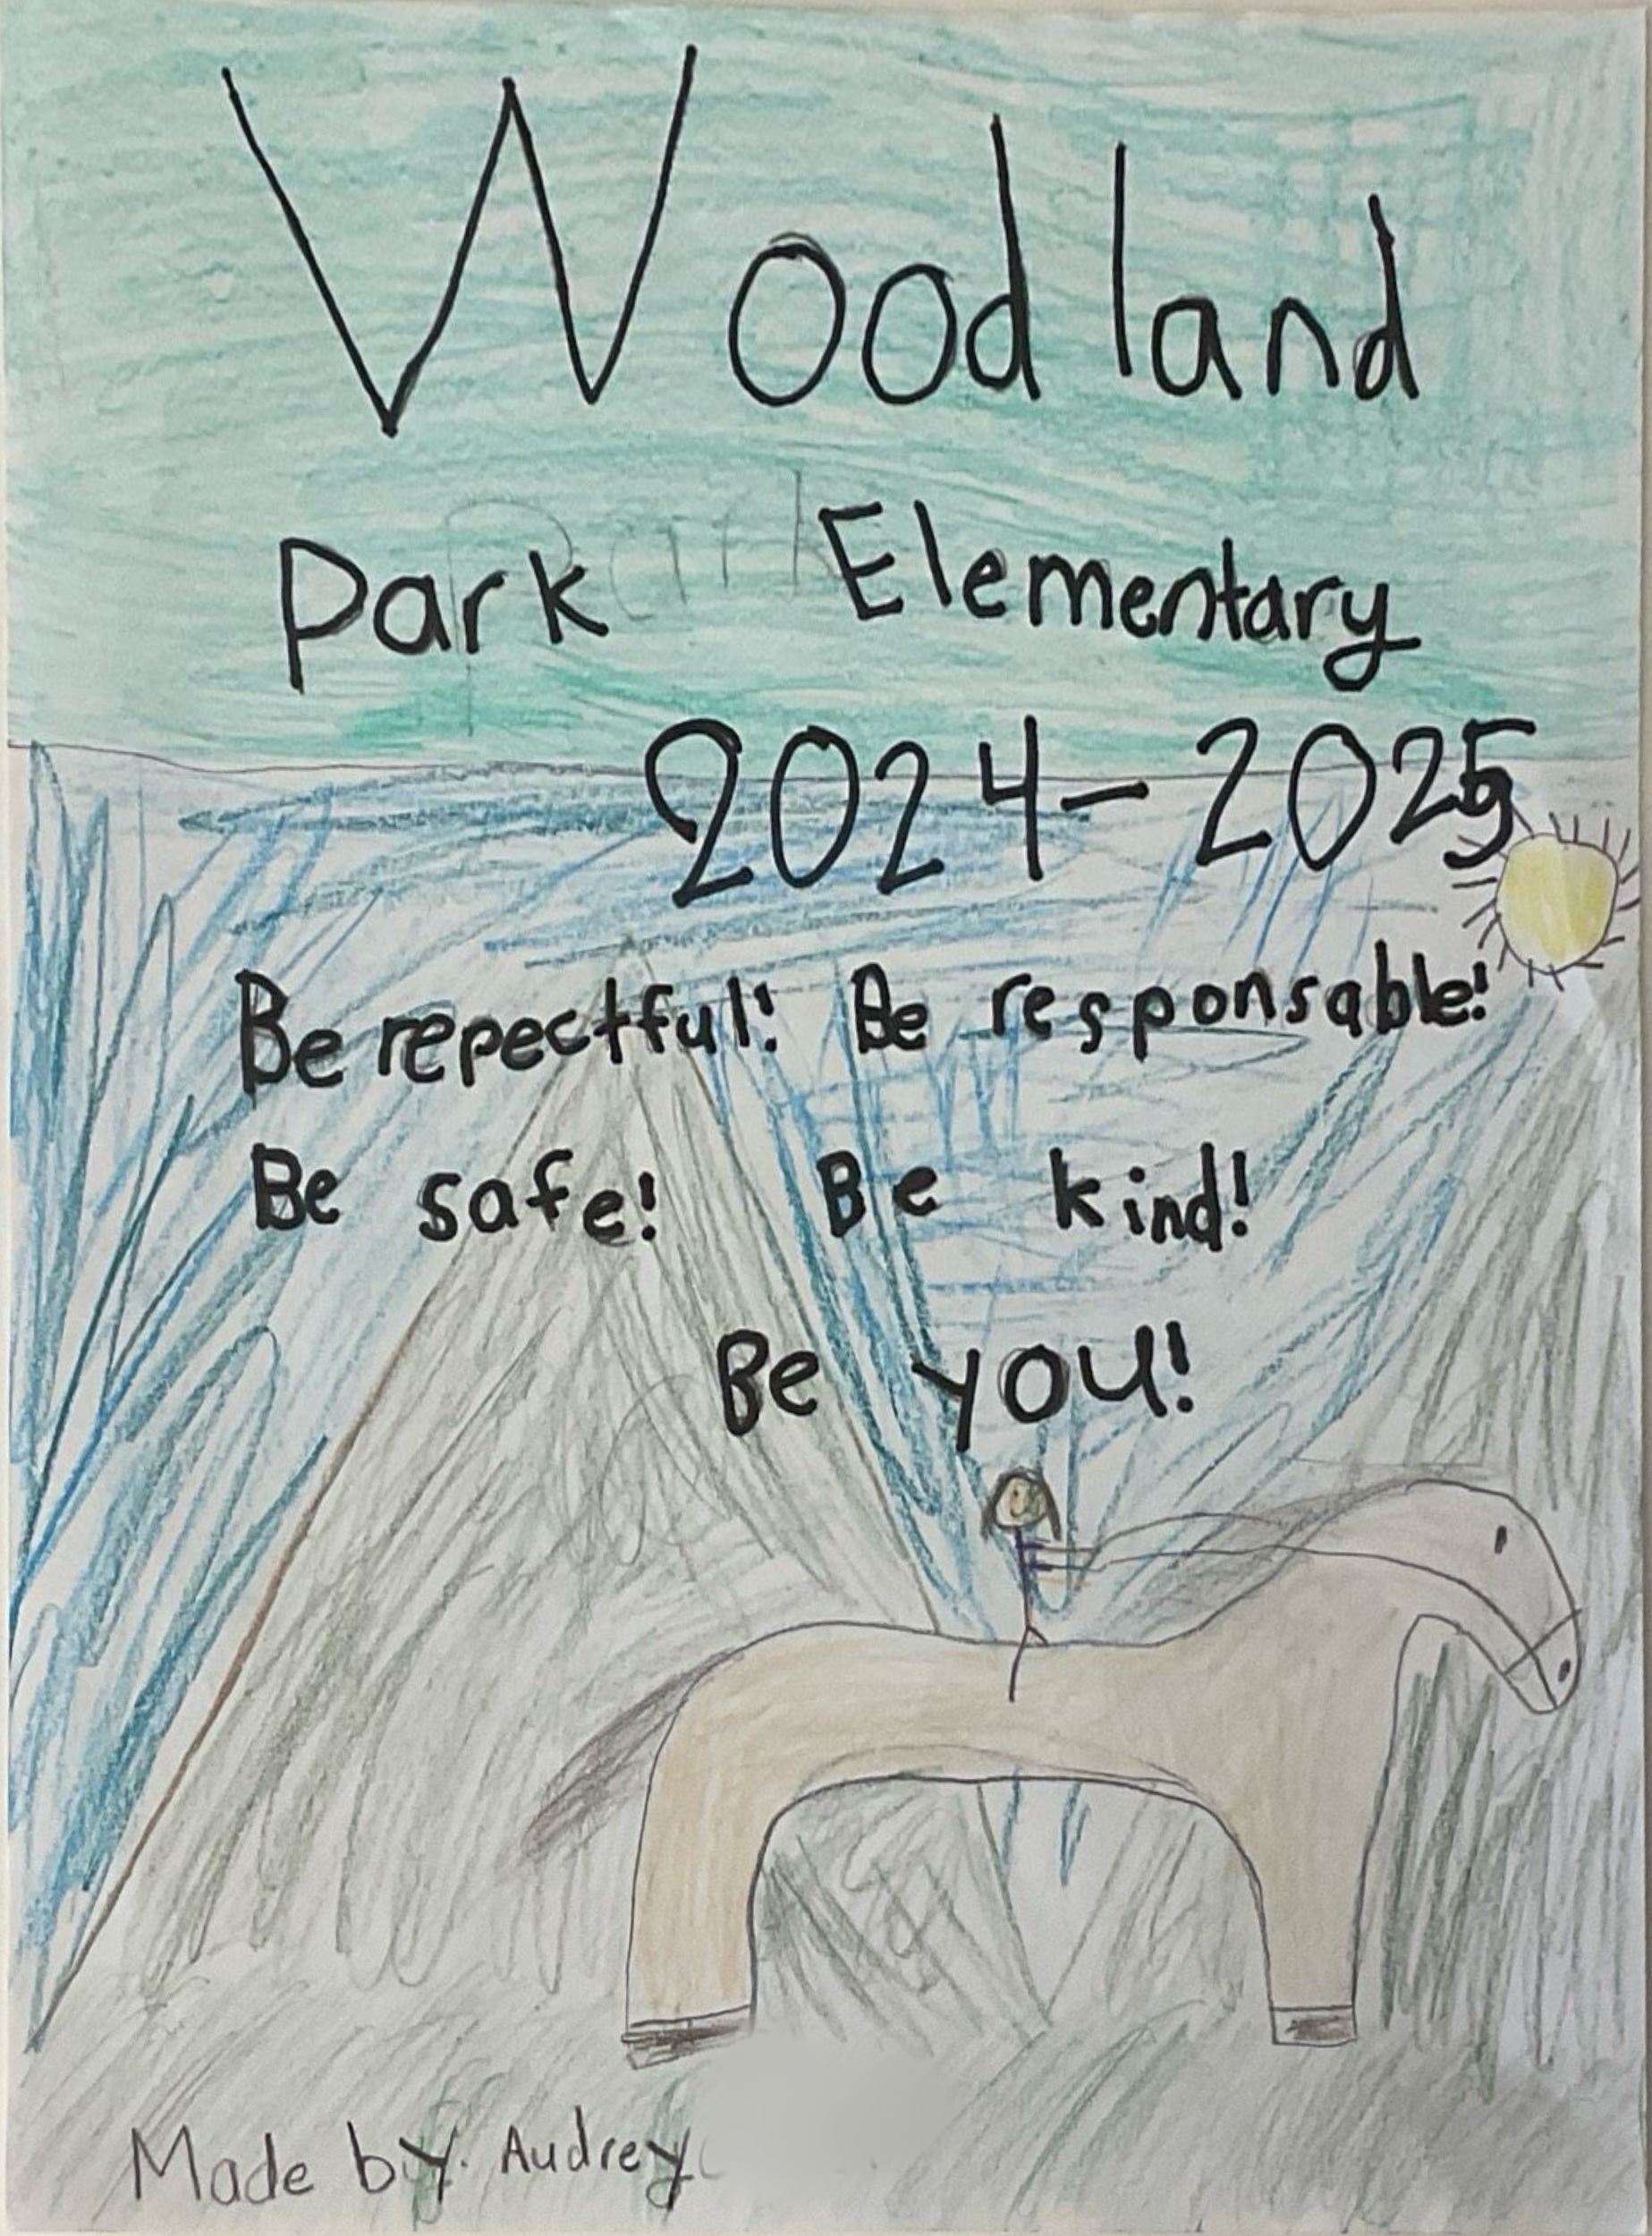 Woodland
Park Elementary
2024-2025
Be repectful! Be responsable!
Be safe! Be kind!
Be you!
Made by Audrey